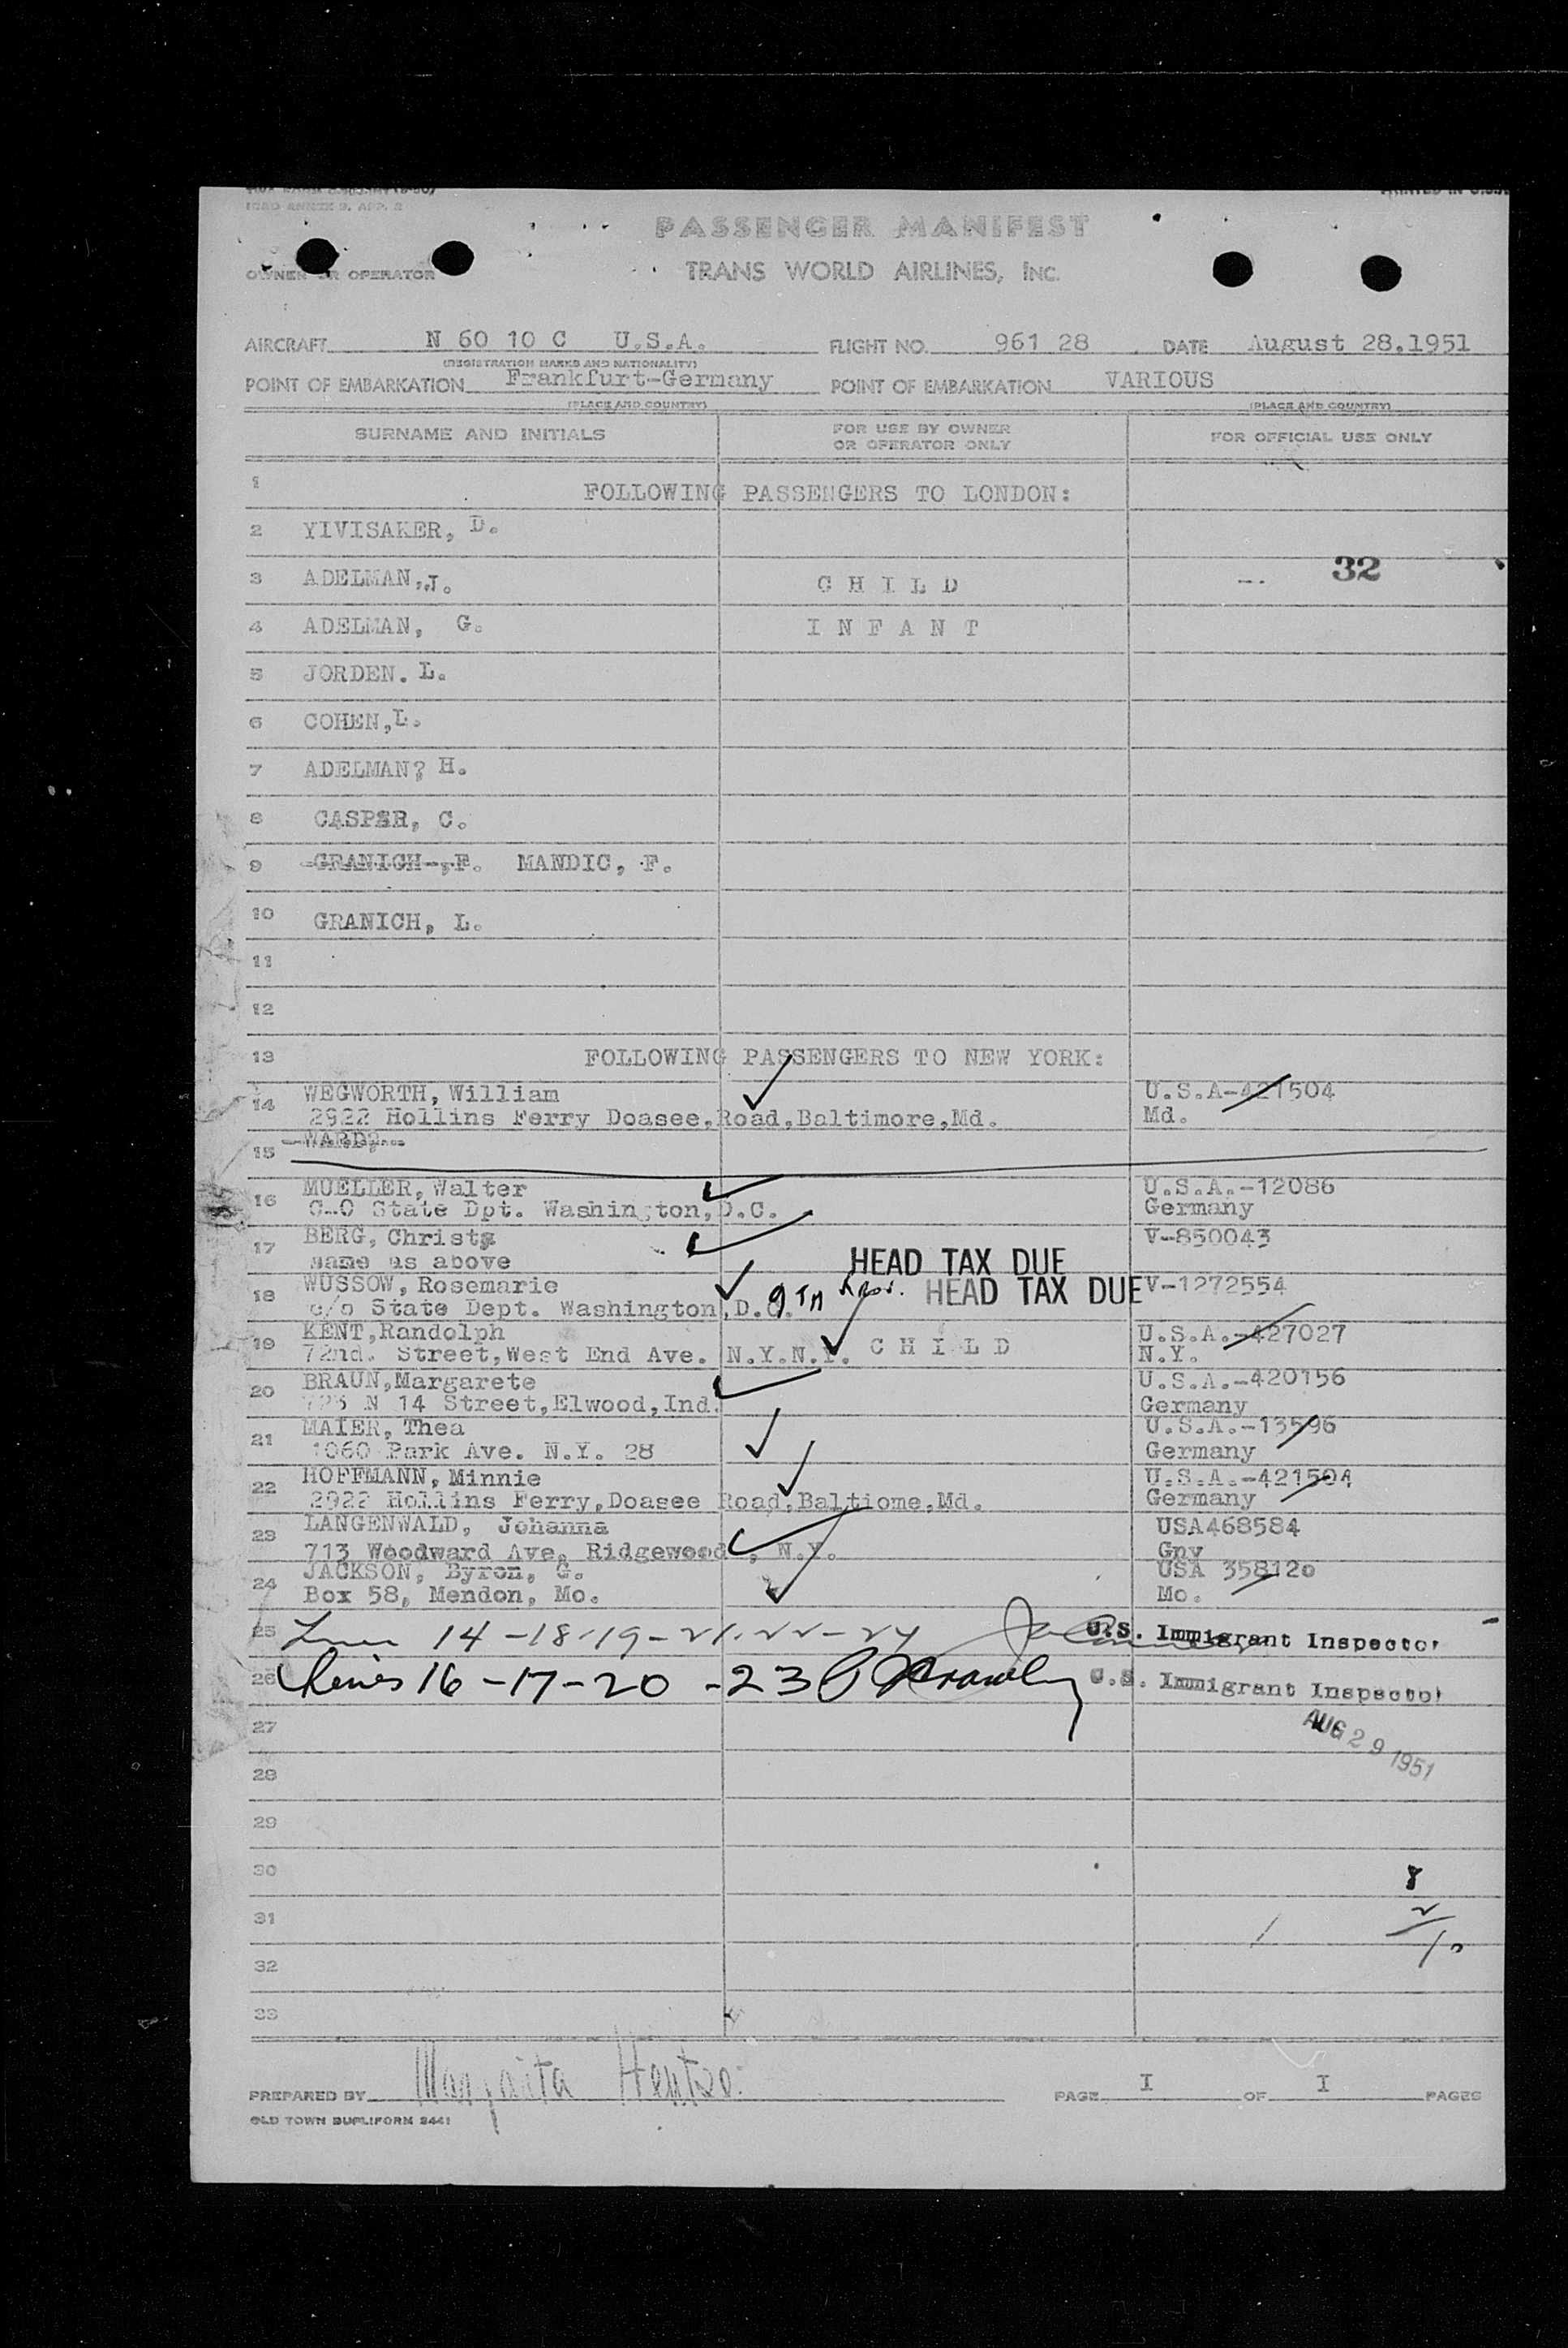 ICAO ANNEX 9, APP. 2
PRINTED IN U.S.A.
PASSENGER MANIFEST
OWNER OR OPERATOR TRANS WORLD AIRLINES, INC.
AIRCRAFT N 60 10 C U.S.A. FLIGHT NO. 961 28 DATE August 28.1951
(REGISTRATION MARKS AND NATIONALITY)
POINT OF EMBARKATION Frankfurt-Germany POINT OF EMBARKATION VARIOUS
(PLACE AND COUNTRY) (PLACE AND COUNTRY)
SURNAME AND INITIALS FOR USE BY OWNER OR OPERATOR ONLY FOR OFFICIAL USE ONLY
1 FOLLOWING PASSENGERS TO LONDON:
2 YIVISAKER, D.
3 ADELMAN,J. C H I L D 32
4 ADELMAN, G. I N F A N T
5 JORDEN. L.
6 COHEN,L.
7 ADELMAN? H.
8 CASPER, C.
9 GRANICH-,F. MANDIC, F.
10 GRANICH, L.
11
12
13 FOLLOWING PASSENGERS TO NEW YORK:
14 WEGWORTH, William U.S.A-421504
2922 Hollins Ferry Doasee,Road,Baltimore,Md. Md.
15 WARD?
16 MUELLER, Walter U.S.A.-12086
C-O State Dpt. Washington,D.C. Germany
17 BERG, Christa V-850043
same as above HEAD TAX DUE
18 WUSSOW, Rosemarie HEAD TAX DUE V-1272554
c/o State Dept. Washington,D.C. 9TH
19 KENT,Randolph U.S.A.-427027
72nd. Street,West End Ave. N.Y.N.Y. C H I L D N.Y.
20 BRAUN,Margarete U.S.A.-420156
N 14 Street,Elwood,Ind. Germany
21 MAIER, Thea U.S.A.-13596
1060 Park Ave. N.Y. 28 Germany
22 HOFFMANN, Minnie U.S.A.-421504
2922 Hollins Ferry,Doasee Road,Baltiome,Md. Germany
23 LANGENWALD, Johanna USA468584
713 Woodward Ave, Ridgewood , N.Y. Gny
24 JACKSON, Byron, G. USA 358120
Box 58, Mendon, Mo. Mo.
25 14 -18-19-21-22-24 U.S. Immigrant Inspector
26 Lines 16 -17-20 -23 U.S. Immigrant Inspector
27 AUG 29 1951
28
29
30 8
31 2
10
32
33
PREPARED BY Margarita PAGE I OF I PAGES
OLD TOWN DUPLIFORM 8441